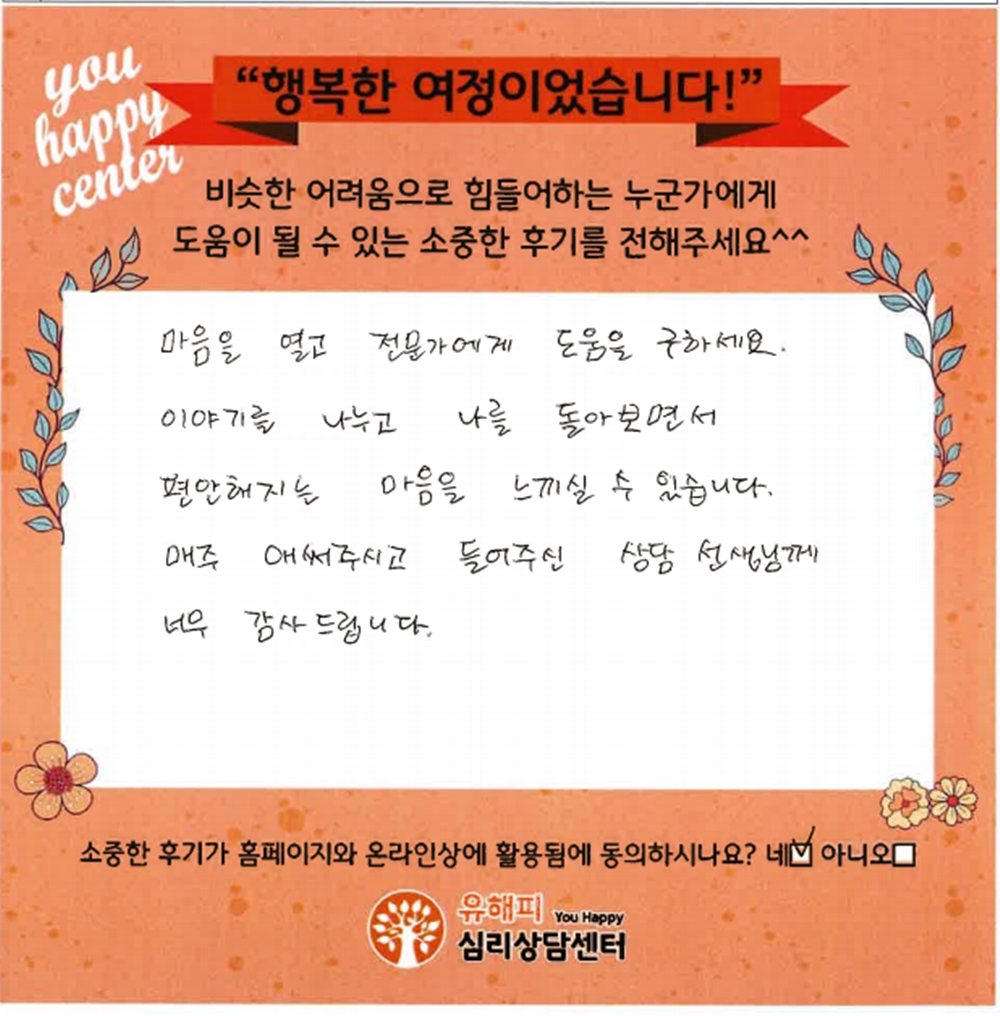 you
happy
center
“행복한 여정이었습니다!”
비슷한 어려움으로 힘들어하는 누군가에게
도움이 될 수 있는 소중한 후기를 전해주세요^^
마음을 열고 전문가에게 도움을 구하세요.
이야기를 나누고 나를 돌아보면서
편안해지는 마음을 느끼실 수 있습니다.
매주 애써주시고 들어주신 상담 선생님께
너무 감사드립니다.
소중한 후기가 홈페이지와 온라인상에 활용됨에 동의하시나요? 네☑ 아니오☐
유해피 You Happy
심리상담센터